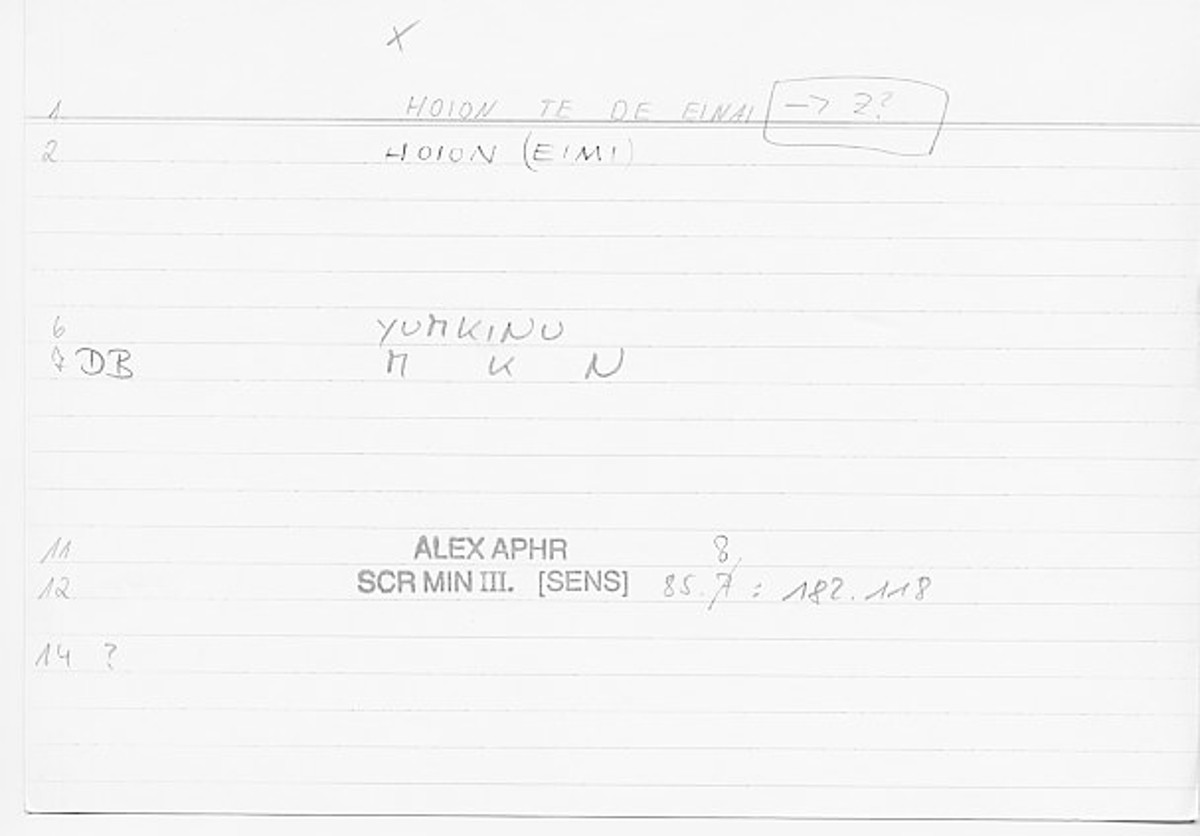 X
1 HOION TE DE EINAI → Z?
2 HOION (EIMI)
6 YUMKINU
7 DB M K N
11 ALEX APHR 8
12 SCR MIN III. [SENS] 85.7 : 182.118
14 ?